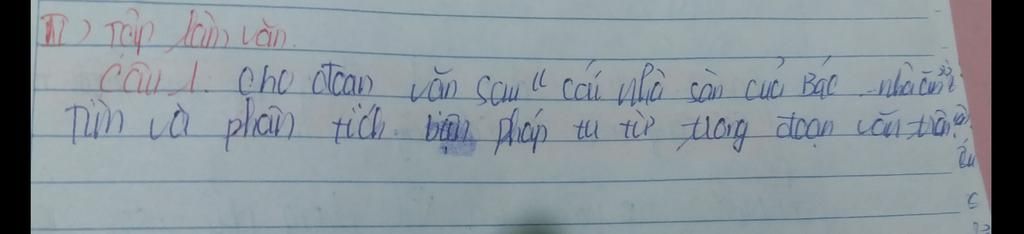 II) Tập làm văn.
Câu 1. Cho đoạn văn sau "cái nhà sàn của Bác...nhà ăn"
Tìm và phân tích biện pháp tu từ trong đoạn văn trên?